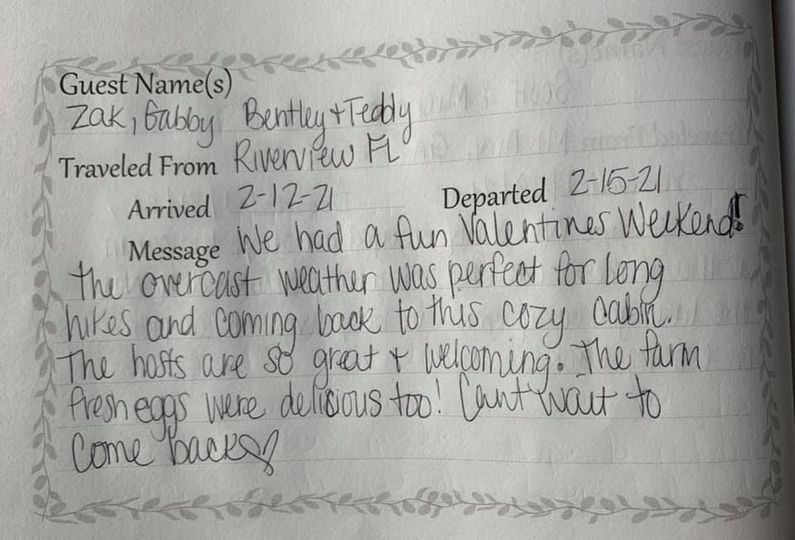 Guest Name(s)
Zak, Gabby Bentley + Teddy
Traveled From Riverview FL
Arrived 2-12-21 Departed 2-15-21
Message We had a fun Valentines Weekend!
the overcast weather was perfect for long
hikes and coming back to this cozy cabin.
The hosts are so great + welcoming. The farm
fresh eggs were delicious too! Cant wait to
come back